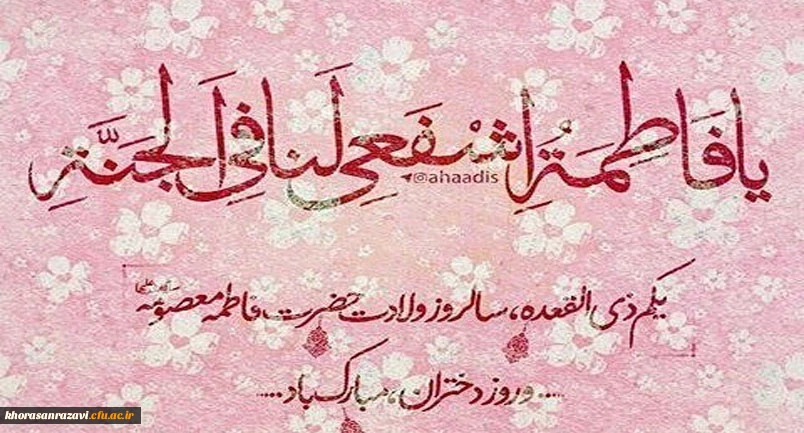 يا فَاطِمَةُ اشْفَعِي لَنا فِي الجَنَّةِ
@ahaadis
یکم ذی القعده، سالروز ولادت حضرت فاطمه معصومه
و روز دختران، مبارک باد.....
khorasanrazavi.cfu.ac.ir